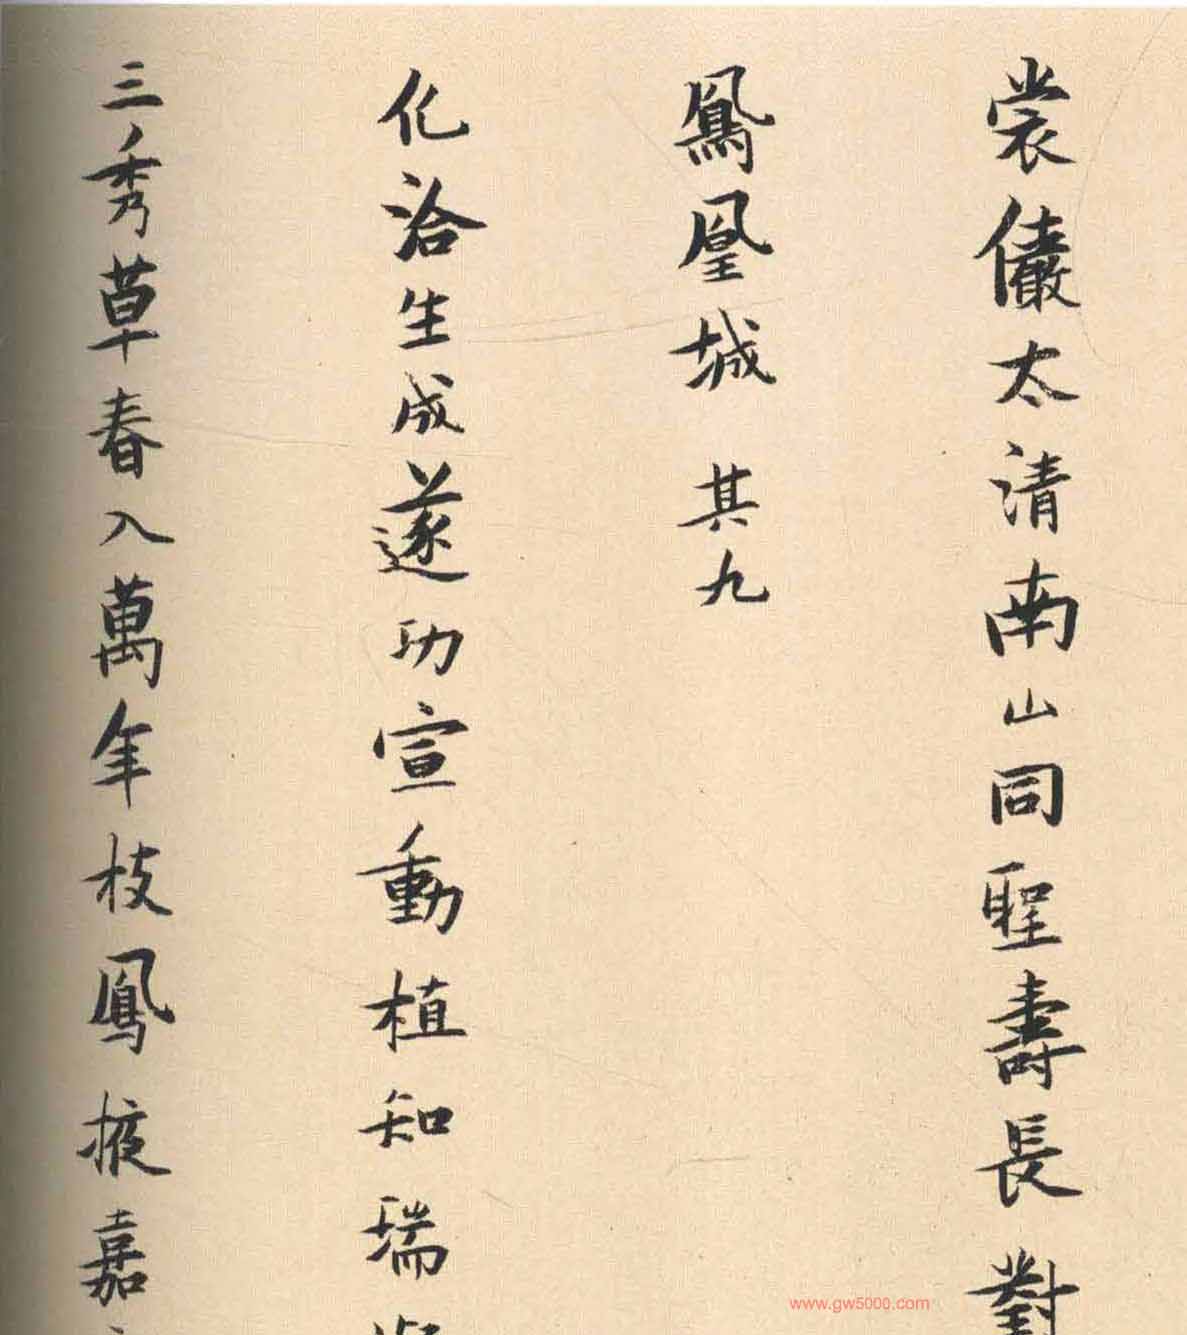 裳儼太清南山同聖壽長對
鳳凰城 其九
化洽生成遂功宣動植知瑞凝
三秀草春入萬年枝鳳掖嘉
www.gw5000.com